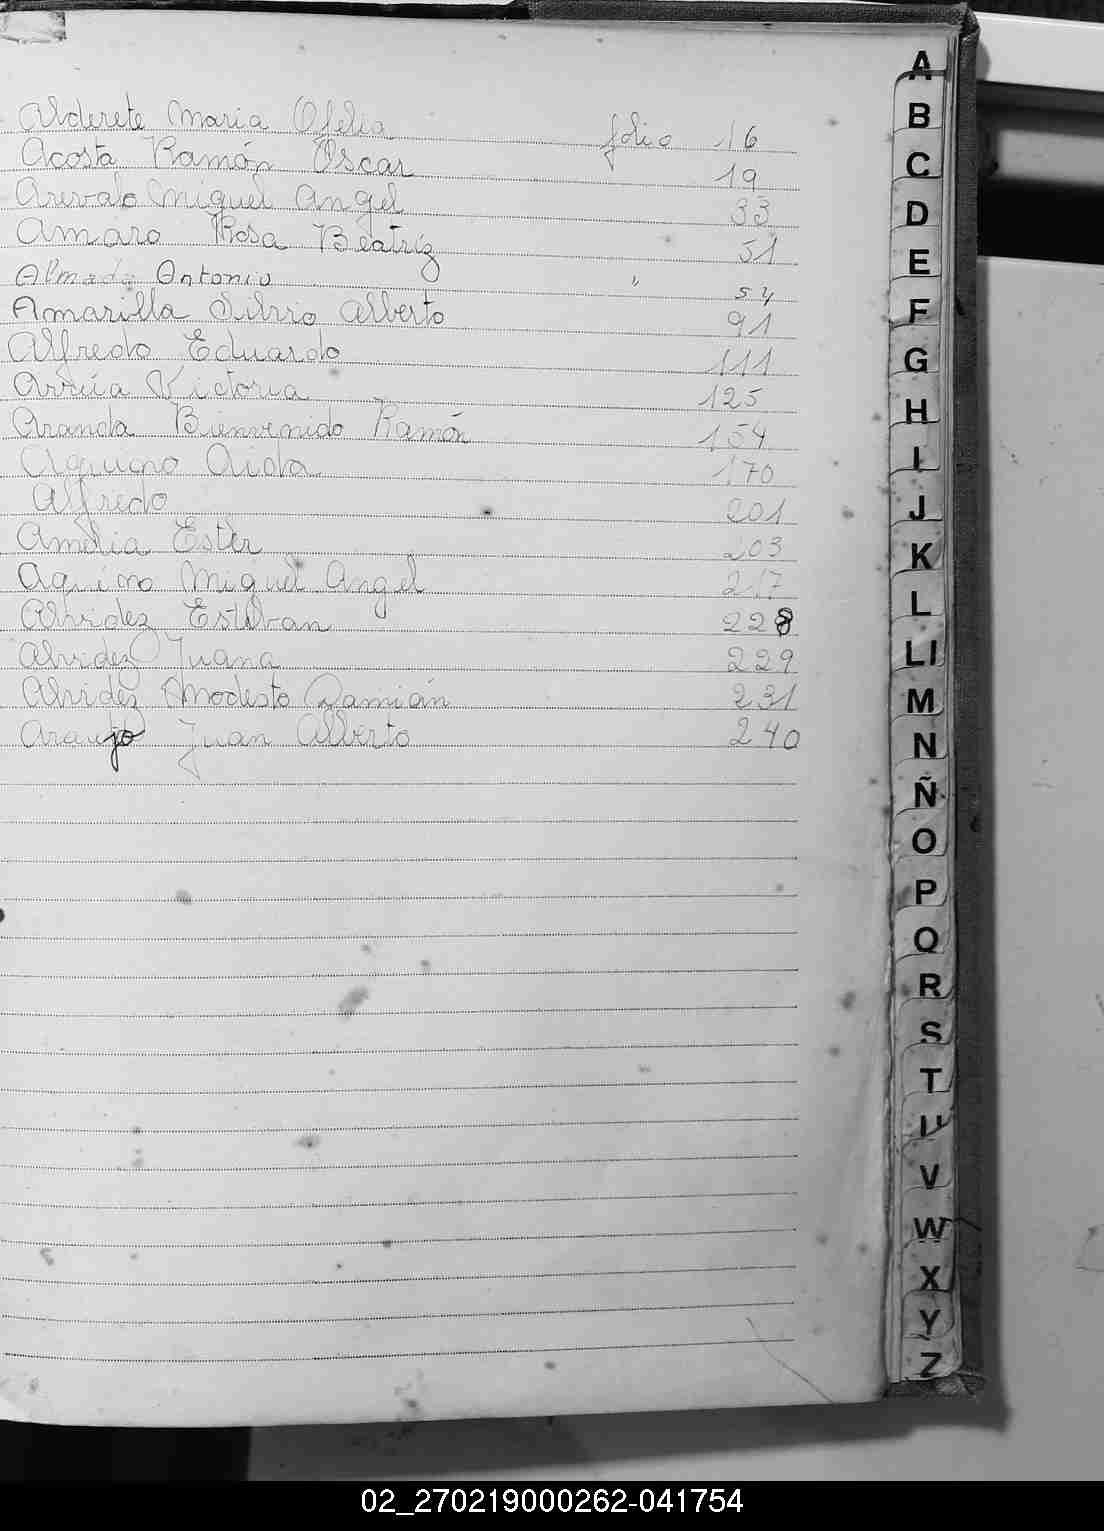 Alderete Maria Ofelia folio 16
Acosta Ramón Oscar 19
Arevalo Miguel Angel 33
Amaro Rosa Beatriz 51
Almada Antonio " 54
Amarilla Silvio Alberto 91
Alfredo Eduardo 111
Arrúa Victoria 125
Aranda Bienvenido Ramón 154
Aquino Aida 170
Alfredo 201
Amelia Ester 203
Aquino Miguel Angel 217
Alvidez Esteban 228
Alvidez Juana 229
Alvidez Modesto Damián 231
Araujo Juan Alberto 240
A
B
C
D
E
F
G
H
I
J
K
L
Ll
M
N
Ñ
O
P
Q
R
S
T
U
V
W
X
Y
Z
02_270219000262-041754